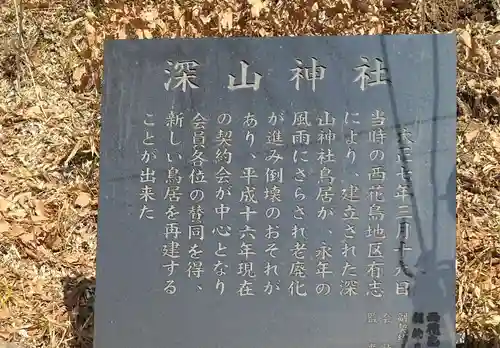 深山神社
大正七年三月十八日
当時の西花鳥地区有志
により、建立された深
山神社鳥居が、永年の
風雨にさらされ老廃化
が進み倒壊のおそれが
あり、平成十六年現在
の契約会が中心となり
会員各位の賛同を得、
新しい鳥居を再建する
ことが出来た